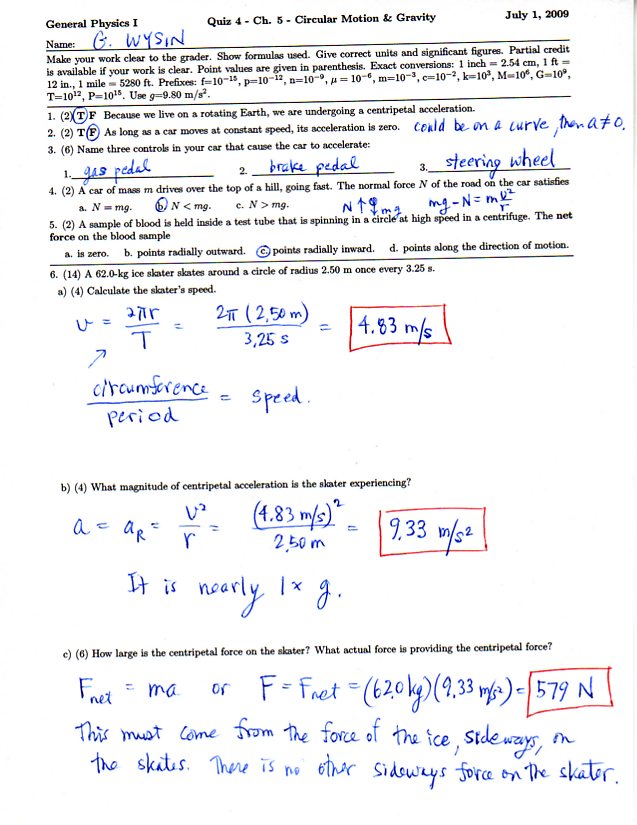 General Physics I Quiz 4 - Ch. 5 - Circular Motion & Gravity July 1, 2009
Name: G. WYSIN
Make your work clear to the grader. Show formulas used. Give correct units and significant figures. Partial credit
is available if your work is clear. Point values are given in parenthesis. Exact conversions: 1 inch = 2.54 cm, 1 ft =
12 in., 1 mile = 5280 ft. Prefixes: f=10⁻¹⁵, p=10⁻¹², n=10⁻⁹, μ = 10⁻⁶, m=10⁻³, c=10⁻², k=10³, M=10⁶, G=10⁹,
T=10¹², P=10¹⁵. Use g=9.80 m/s².
1. (2) T F Because we live on a rotating Earth, we are undergoing a centripetal acceleration.
2. (2) T F As long as a car moves at constant speed, its acceleration is zero. could be on a curve, then a≠0.
3. (6) Name three controls in your car that cause the car to accelerate:
1. gas pedal 2. brake pedal 3. steering wheel
4. (2) A car of mass m drives over the top of a hill, going fast. The normal force N of the road on the car satisfies
a. N = mg. b. N < mg. c. N > mg. N↑ ↓mg mg-N = m v²/r
5. (2) A sample of blood is held inside a test tube that is spinning in a circle at high speed in a centrifuge. The net
force on the blood sample
a. is zero. b. points radially outward. c. points radially inward. d. points along the direction of motion.
6. (14) A 62.0-kg ice skater skates around a circle of radius 2.50 m once every 3.25 s.
a) (4) Calculate the skater's speed.
v = 2πr/T = 2π (2.50 m)/3.25 s = 4.83 m/s
circumference/period = speed.
b) (4) What magnitude of centripetal acceleration is the skater experiencing?
a = a_R = v²/r = (4.83 m/s)²/2.50 m = 9.33 m/s²
It is nearly 1× g.
c) (6) How large is the centripetal force on the skater? What actual force is providing the centripetal force?
F_net = ma or F = F_net = (62.0 kg)(9.33 m/s²) = 579 N
This must come from the force of the ice, sideways, on
the skates. There is no other sideways force on the skater.